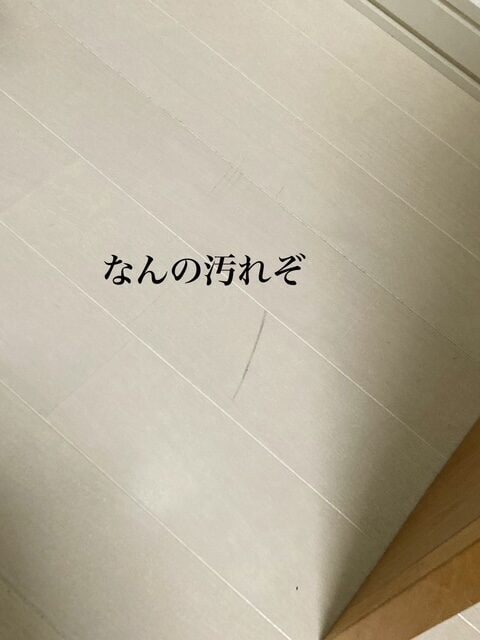 なんの汚れぞ